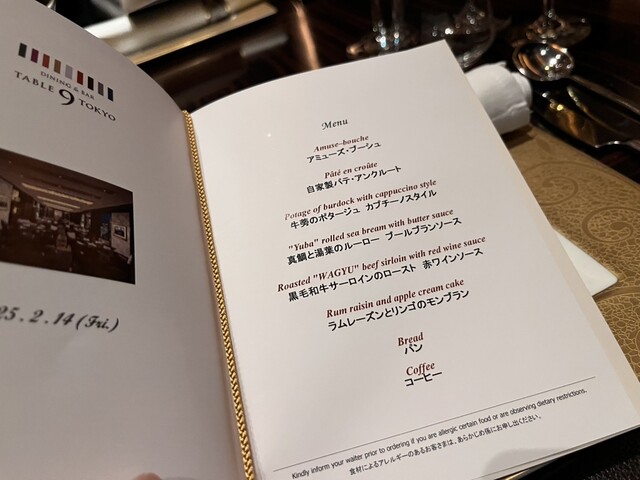 DINING & BAR
TABLE 9 TOKYO
25.2.14 (Fri.)
Menu
Amuse-bouche
アミューズ・ブーシュ
Pâté en croûte
自家製パテ・アンクルート
Potage of burdock with cappuccino style
牛蒡のポタージュ カプチーノスタイル
"Yuba" rolled sea bream with butter sauce
真鯛と湯葉のルーロー ブールブランソース
Roasted "WAGYU" beef sirloin with red wine sauce
黒毛和牛サーロインのロースト 赤ワインソース
Rum raisin and apple cream cake
ラムレーズンとリンゴのモンブラン
Bread
パン
Coffee
コーヒー
Kindly inform your waiter prior to ordering if you are allergic certain food or are observing dietary restrictions.
食材によるアレルギーのあるお客さまは、あらかじめ係にお申し出ください。